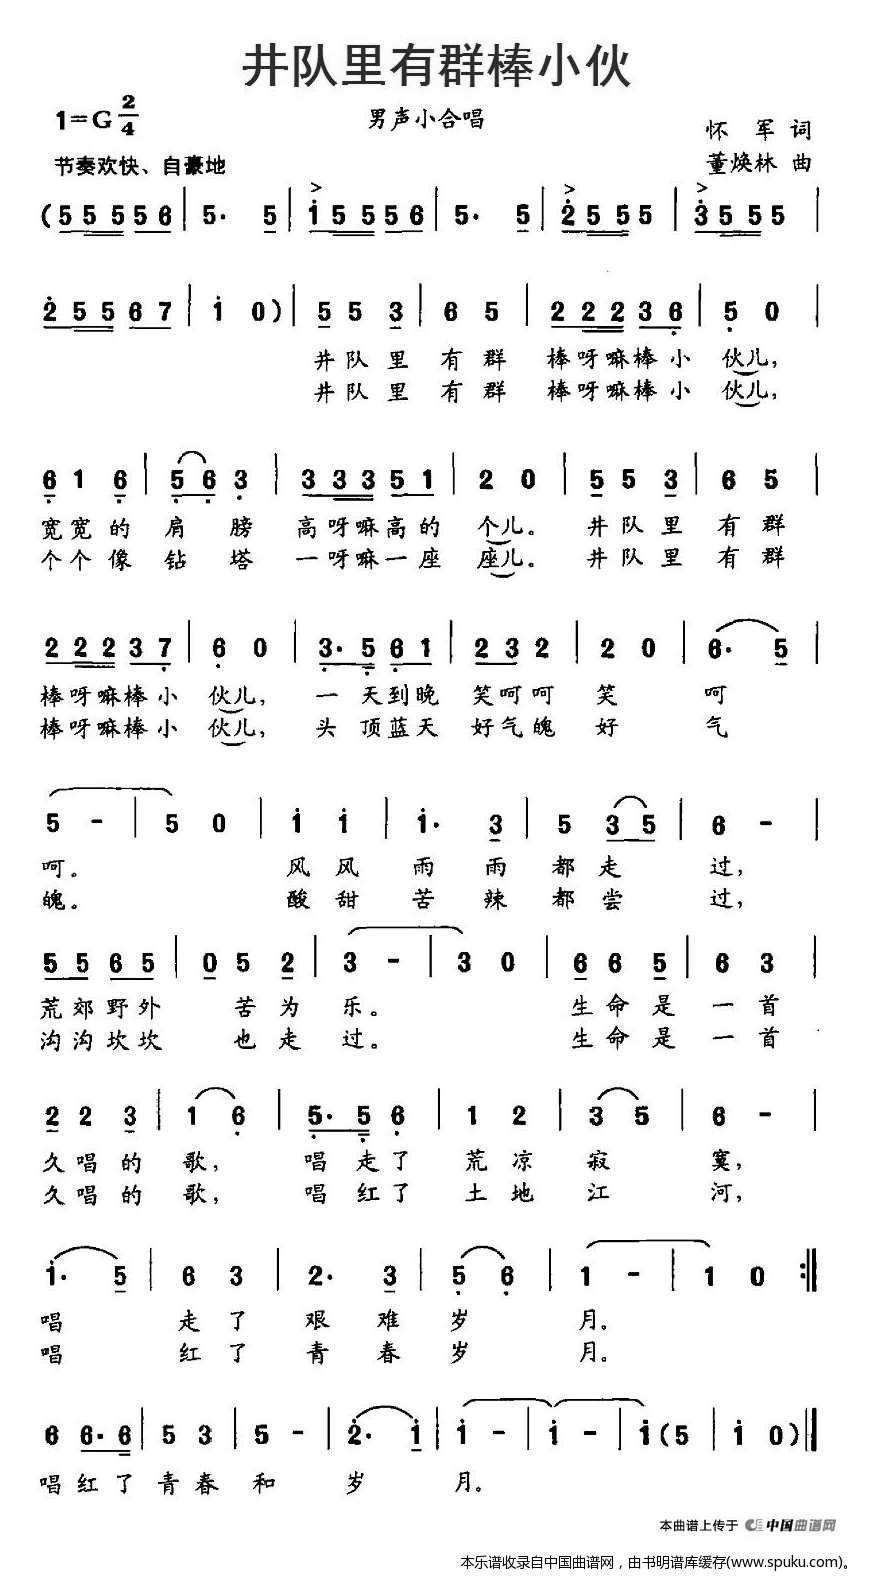 井队里有群棒小伙
1=G 2/4
男声小合唱
怀 军 词
节奏欢快、自豪地
董焕林 曲
(5 555 56 | 5· 5 | i 555 56 | 5· 5 | 2 55 5 | 3 55 5 |
2 55 67 | i 0) | 5 5 3 | 6 5 | 2 22 36 | 5 0 |
井队里 有群 棒呀嘛棒小 伙儿,
井队里 有群 棒呀嘛棒小 伙儿,
6 1 6 | 5 6 3 | 3 33 51 | 2 0 | 5 5 3 | 6 5 |
宽宽的 肩 膀 高呀嘛高的 个儿。 井队里 有群
个个像 钻 塔 一呀嘛一座 座儿。 井队里 有群
2 22 37 | 6 0 | 3· 5 61 | 23 2 | 2 0 | 6· 5 |
棒呀嘛棒小 伙儿, 一 天到晚 笑呵呵 笑 呵
棒呀嘛棒小 伙儿, 头 顶蓝天 好气魄 好 气
5 - | 5 0 | i i | i· 3 | 5 35 | 6 - |
呵。 风风 雨 雨 都走 过,
魄。 酸甜 苦 辣 都尝 过,
55 65 | 0 5 2 | 3 - | 3 0 | 6 6 5 | 6 3 |
荒郊野外 苦为 乐。 生命是 一首
沟沟坎坎 也走 过。 生命是 一首
2 2 3 | 1 6 | 5· 5 6 | 1 2 | 3 5 | 6 - |
久唱的 歌, 唱 走了 荒凉 寂 寞,
久唱的 歌, 唱 红了 土地 江 河,
i· 5 | 6 3 | 2· 3 | 5 6 | 1 - | 1 0 :||
唱 走了 艰 难 岁 月。
唱 红了 青 春 岁 月。
6 6· 6 | 5 3 | 5 - | 2· i | i - | i - | i (5 | i 0) ||
唱红了 青春 和 岁 月。
本曲谱上传于 中国曲谱网
本乐谱收录自中国曲谱网，由书明谱库缓存(www.spuku.com)。